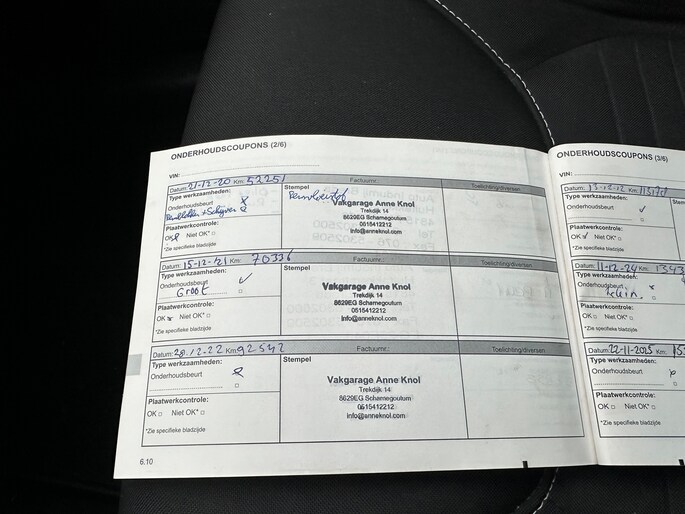 ONDERHOUDSCOUPONS (2/6)
VIN:
Datum: 21-12-20 Km: 52251 Factuurnr.: Toelichting/diversen
Type werkzaamheden: Stempel
Onderhoudsbeurt
Plaatwerkcontrole:
OK Niet OK*
*Zie specifieke bladzijde
Vakgarage Anne Knol
Trekdijk 14
8629EG Scharnegoutum
0515412212
info@anneknol.com
Datum: 15-12-'21 Km: 70336 Factuurnr.: Toelichting/diversen
Type werkzaamheden: Stempel
Onderhoudsbeurt
Groot
Plaatwerkcontrole:
OK Niet OK*
*Zie specifieke bladzijde
Vakgarage Anne Knol
Trekdijk 14
8629EG Scharnegoutum
0515412212
info@anneknol.com
Datum: 20.12.22 Km: 92542 Factuurnr.: Toelichting/diversen
Type werkzaamheden: Stempel
Onderhoudsbeurt
Plaatwerkcontrole:
OK Niet OK*
*Zie specifieke bladzijde
Vakgarage Anne Knol
Trekdijk 14
8629EG Scharnegoutum
0515412212
info@anneknol.com
6.10
ONDERHOUDSCOUPONS (3/6)
VIN:
Datum:
Type werkzaamheden:
Onderhoudsbeurt
Plaatwerkcontrole:
OK Niet OK*
*Zie specifieke bladzijde
Datum: 11-12-24 Km:
Type werkzaamheden:
Onderhoudsbeurt
klein
Plaatwerkcontrole:
OK Niet OK*
*Zie specifieke bladzijde
Datum: 22-11-2025 Km:
Type werkzaamheden:
Onderhoudsbeurt
Plaatwerkcontrole:
OK Niet OK*
*Zie specifieke bladzijde